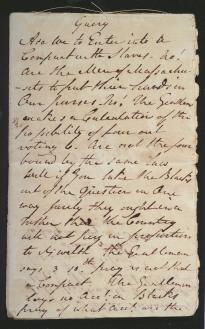 Query
Are we to Enter into a
Compact with Slaves. No!
Are the Men of Massachu-
setts to put their hands in
Our purses. No! The Gentlemn
makes a Calculation of the
possibility of four out
voting 6. Are not the four
bound by the same Law
Well if you take the Blacks
out of the Question in One
way surely they ought in a
the Country
will not pay in proportion
to its wealth the Gentlemen
says, 
a Compact. The Gentlemen
says no in Blacks
pray of what acct are the